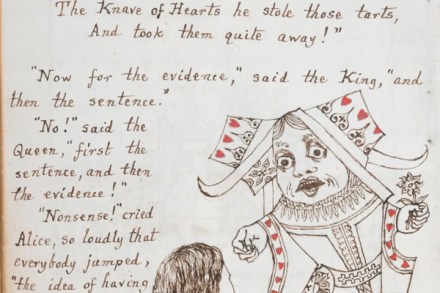 The Knave of Hearts he stole those tarts,
And took them quite away!"
"Now for the evidence," said the King, "and
then the sentence."
"No!" said the
Queen, "first the
sentence, and then
the evidence!"
"Nonsense!" cried
Alice, so loudly that
everybody jumped,
"the idea of having